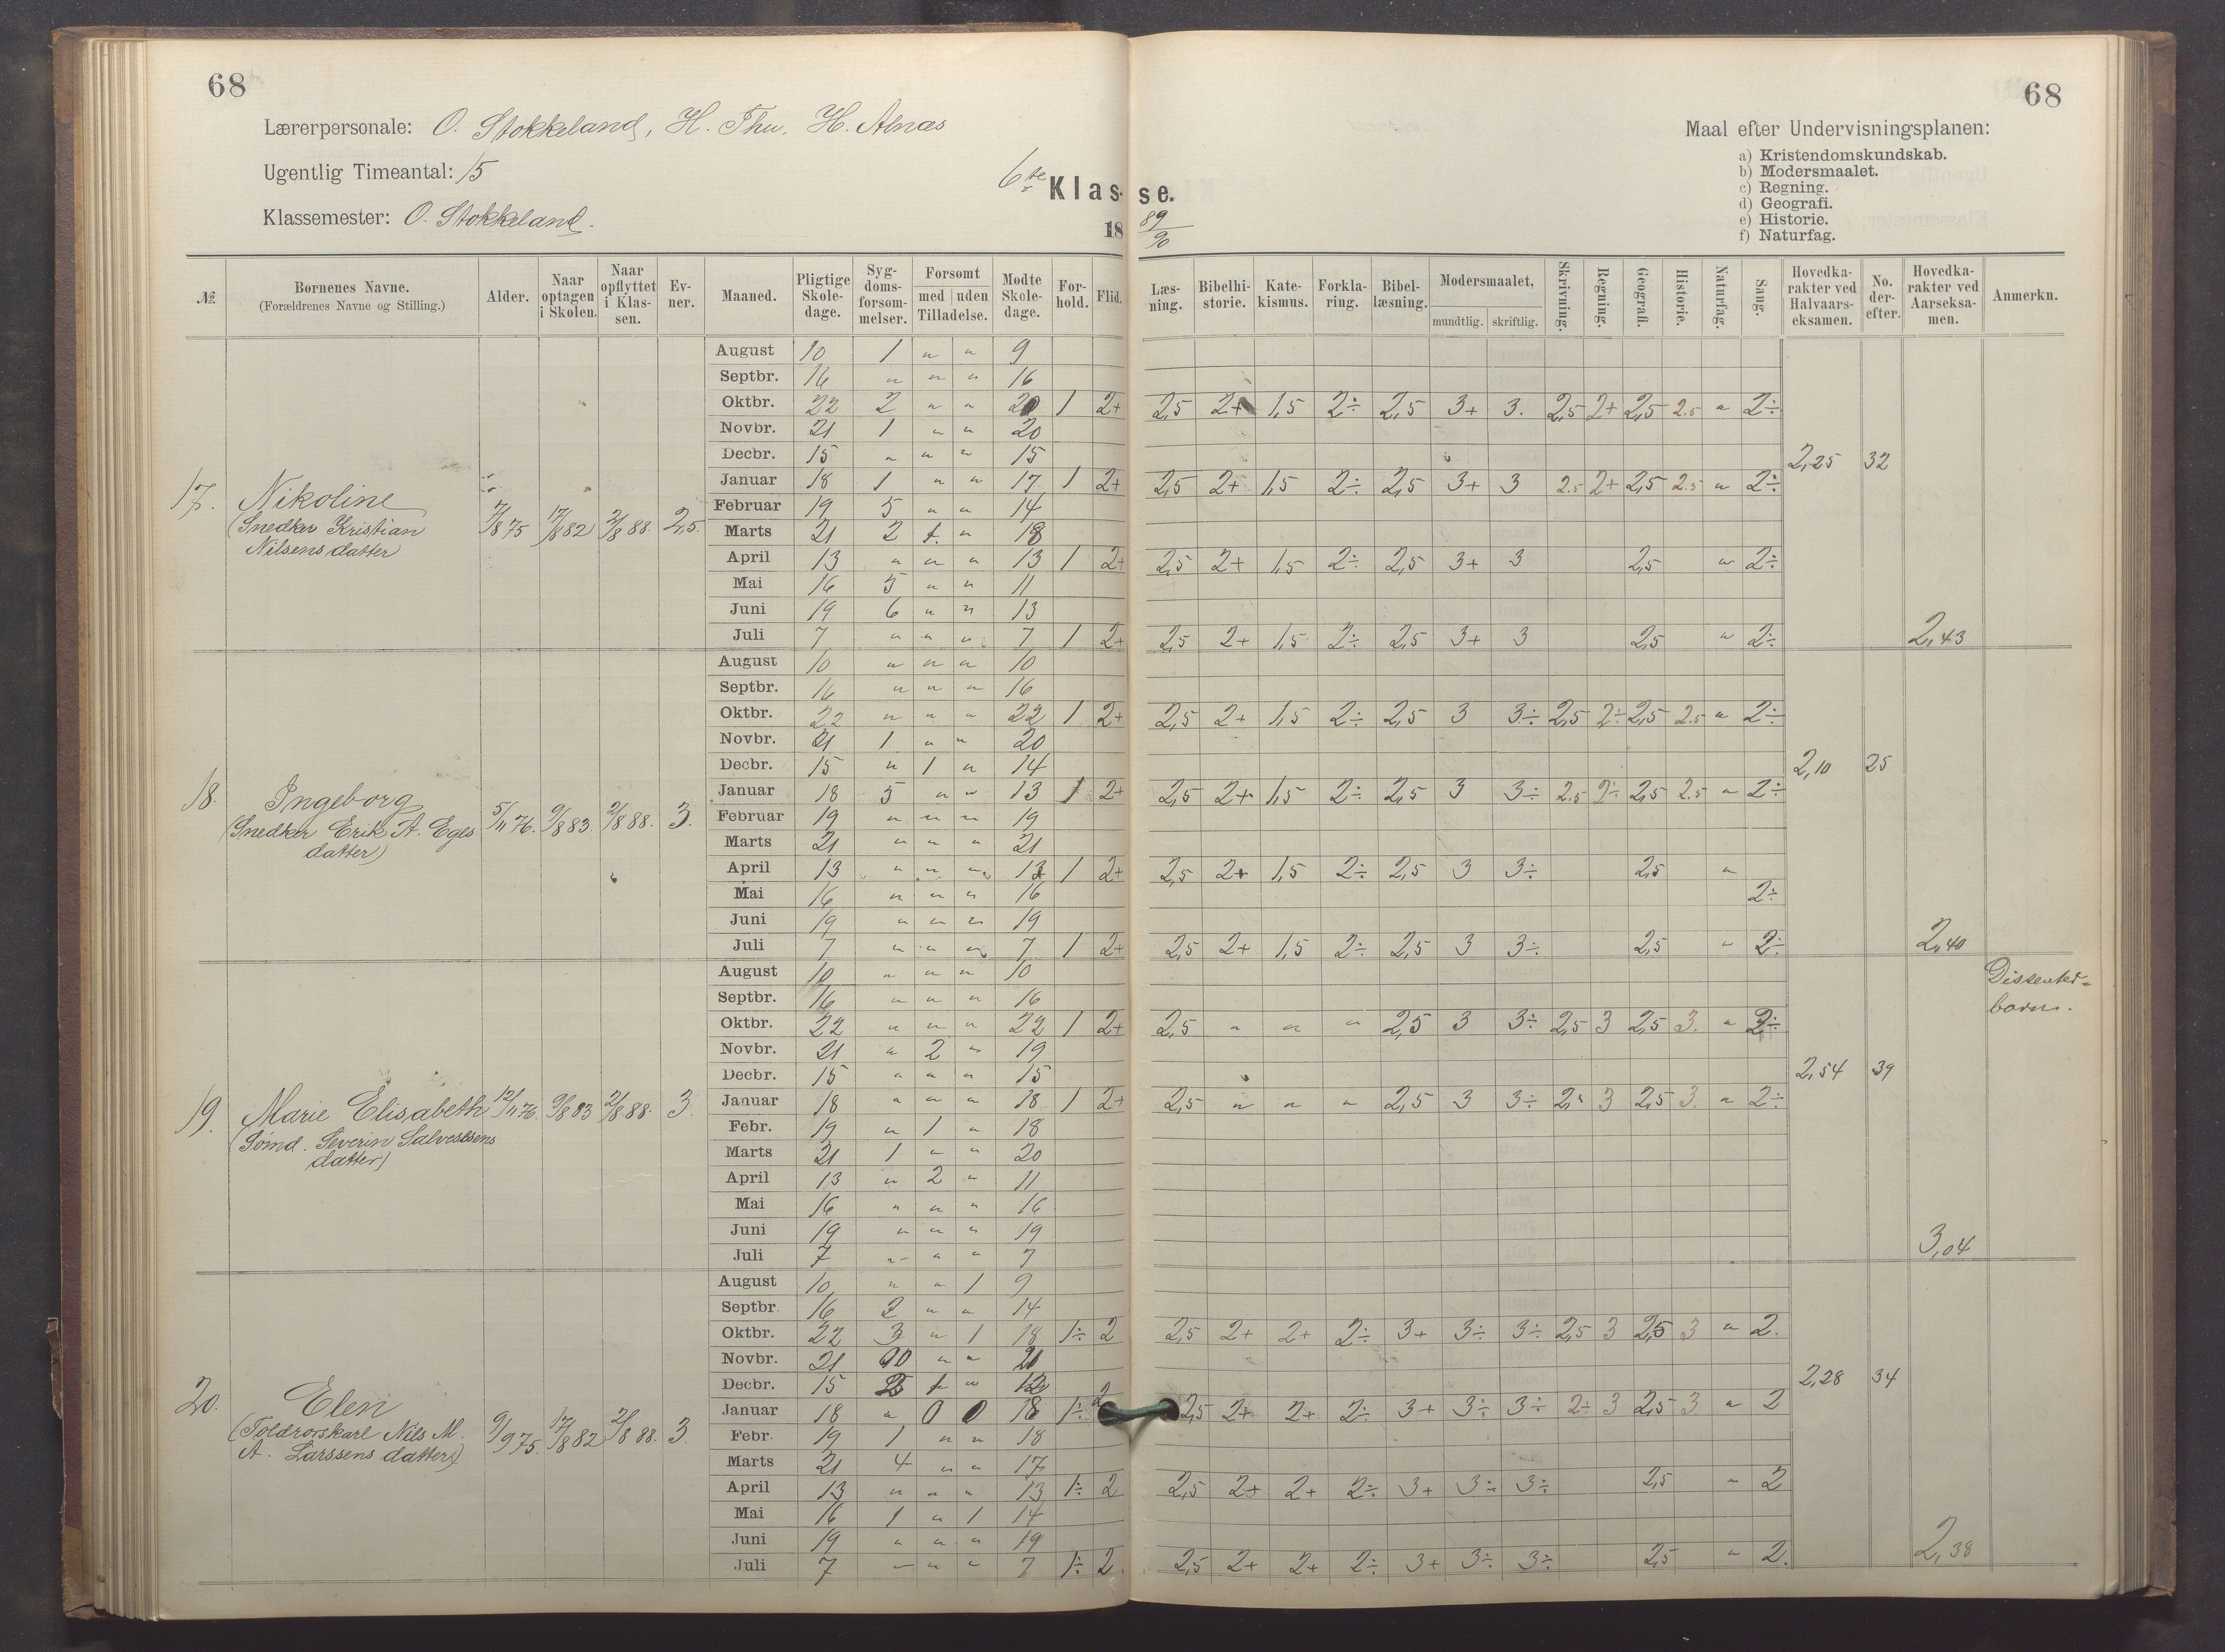 68
Lærerpersonale: O. Stokkeland, H. Thu, H. Alnæs
Ugentlig Timeantal: 15
Klassemester: O. Stokkeland.
6te Klas-
18
68
Maal efter Undervisningsplanen:
a) Kristendomskundskab.
b) Modersmaalet.
c) Regning.
d) Geografi.
e) Historie.
f) Naturfag.
se.
89/90
№ Børnenes Navne. (Forældrenes Navne og Stilling.) Alder. Naar optagen i Skolen. Naar opflyttet i Klassen. Evner. Maaned. Pligtige Skoledage. Sygdomsforsømmelser. Forsømt med uden Tilladelse. Mødte Skoledage. Forhold. Flid.
Læsning. Bibelhistorie. Katekismus. Forklaring. Bibellæsning. Modersmaalet, mundtlig. skriftlig. Skrivning. Regning. Geografi. Historie. Naturfag. Sang. Hovedkarakter ved Halvaarseksamen. No. derefter. Hovedkarakter ved Aarseksamen. Anmerkn.
17. Nikoline
(Snedker Kristian
Nilsens datter
7/8 75 17/8 82 2/8 88. 2,5.
August 10 1 " " 9
Septbr. 16 " " " 16
Oktbr. 22 2 " " 20 1 2+ 2,5 2+ 1,5 2÷ 2,5 3+ 3. 2,5 2+ 2,5 2.5 " 2÷
Novbr. 21 1 " " 20
Decbr. 15 " " " 15 2,25 32
Januar 18 1 " " 17 1 2+ 2,5 2+ 1,5 2÷ 2,5 3+ 3 2.5 2+ 2,5 2.5 " 2÷
Februar 19 5 " " 14
Marts 21 2 1. " 18
April 13 " " " 13 1 2+ 2,5 2+ 1,5 2÷ 2,5 3+ 3 2,5 " 2÷
Mai 16 5 " " 11
Juni 19 6 " " 13
Juli 7 " " " 7 1 2+ 2,5 2+ 1,5 2÷ 2,5 3+ 3 2,5 " 2÷ 2,43
18. Ingeborg
(Snedker Erik A. Eges
datter)
5/11 76. 9/8 83. 2/8 88. 3.
August 10 " " " 10
Septbr. 16 " " " 16
Oktbr. 22 " " " 22 1 2+ 2,5 2+ 1,5 2÷ 2,5 3 3÷ 2,5 2÷ 2,5 2.5 " 2÷
Novbr. 21 1 " " 20
Decbr. 15 " 1 " 14 2,10 25
Januar 18 5 " " 13 1 2+ 2,5 2+ 1,5 2÷ 2,5 3 3÷ 2.5 2÷ 2,5 2.5 " 2÷
Februar 19 " " " 19
Marts 21 " " " 21
April 13 " " " 13 1 2+ 2,5 2+ 1,5 2÷ 2,5 3 3÷ 2,5 "
Mai 16 " " " 16 2÷
Juni 19 " " " 19
Juli 7 " " " 7 1 2+ 2,5 2+ 1,5 2÷ 2,5 3 3÷ 2,5 " 2÷ 2,40
19. Marie Elisabeth
(Sømd. Severin Salvesens
datter)
12/11 76. 9/8 83 2/8 88. 3.
August 10 " " " 10 Dissenter=
Septbr. 16 " " " 16 barn.
Oktbr. 22 " " " 22 1 2+ 2,5 " " " 2,5 3 3÷ 2,5 3 2,5 3. " 2÷
Novbr. 21 " 2 " 19
Decbr. 15 " " " 15 2,54 39
Januar 18 " " " 18 1 2+ 2,5 " " " 2,5 3 3÷ 2,5 3 2,5 3. " 2÷
Febr. 19 " 1 " 18
Marts 21 1 " " 20
April 13 " 2 " 11
Mai 16 " " " 16
Juni 19 " " " 19
Juli 7 " " " 7 3,04
20. Elen
(Toldrorskarl Nils M.
A. Larssens datter)
9/9 75. 17/8 82 2/8 88. 3
August 10 " " 1 9
Septbr. 16 2 " " 14
Oktbr. 22 3 " 1 18 1÷ 2 2,5 2+ 2+ 2÷ 3+ 3÷ 3÷ 2,5 3 2,5 3 " 2.
Novbr. 21 " " 21
Decbr. 15 1 " 12 2,28 34
Januar 18 " 0 0 18 1÷ 2 2,5 2+ 2+ 2÷ 3+ 3÷ 3÷ 2÷ 3 2,5 3. " 2
Febr. 19 1 " " 18
Marts 21 4 " " 17
April 13 " " " 13 1÷ 2 2,5 2+ 2+ 2÷ 3+ 3÷ 3÷ 2,5 " 2
Mai 16 1 " 1 14
Juni 19 " " " 19
Juli 7 " " " 7 1÷ 2. 2,5 2+ 2+ 2÷ 3+ 3÷ 3÷ 2,5 " 2. 2,38